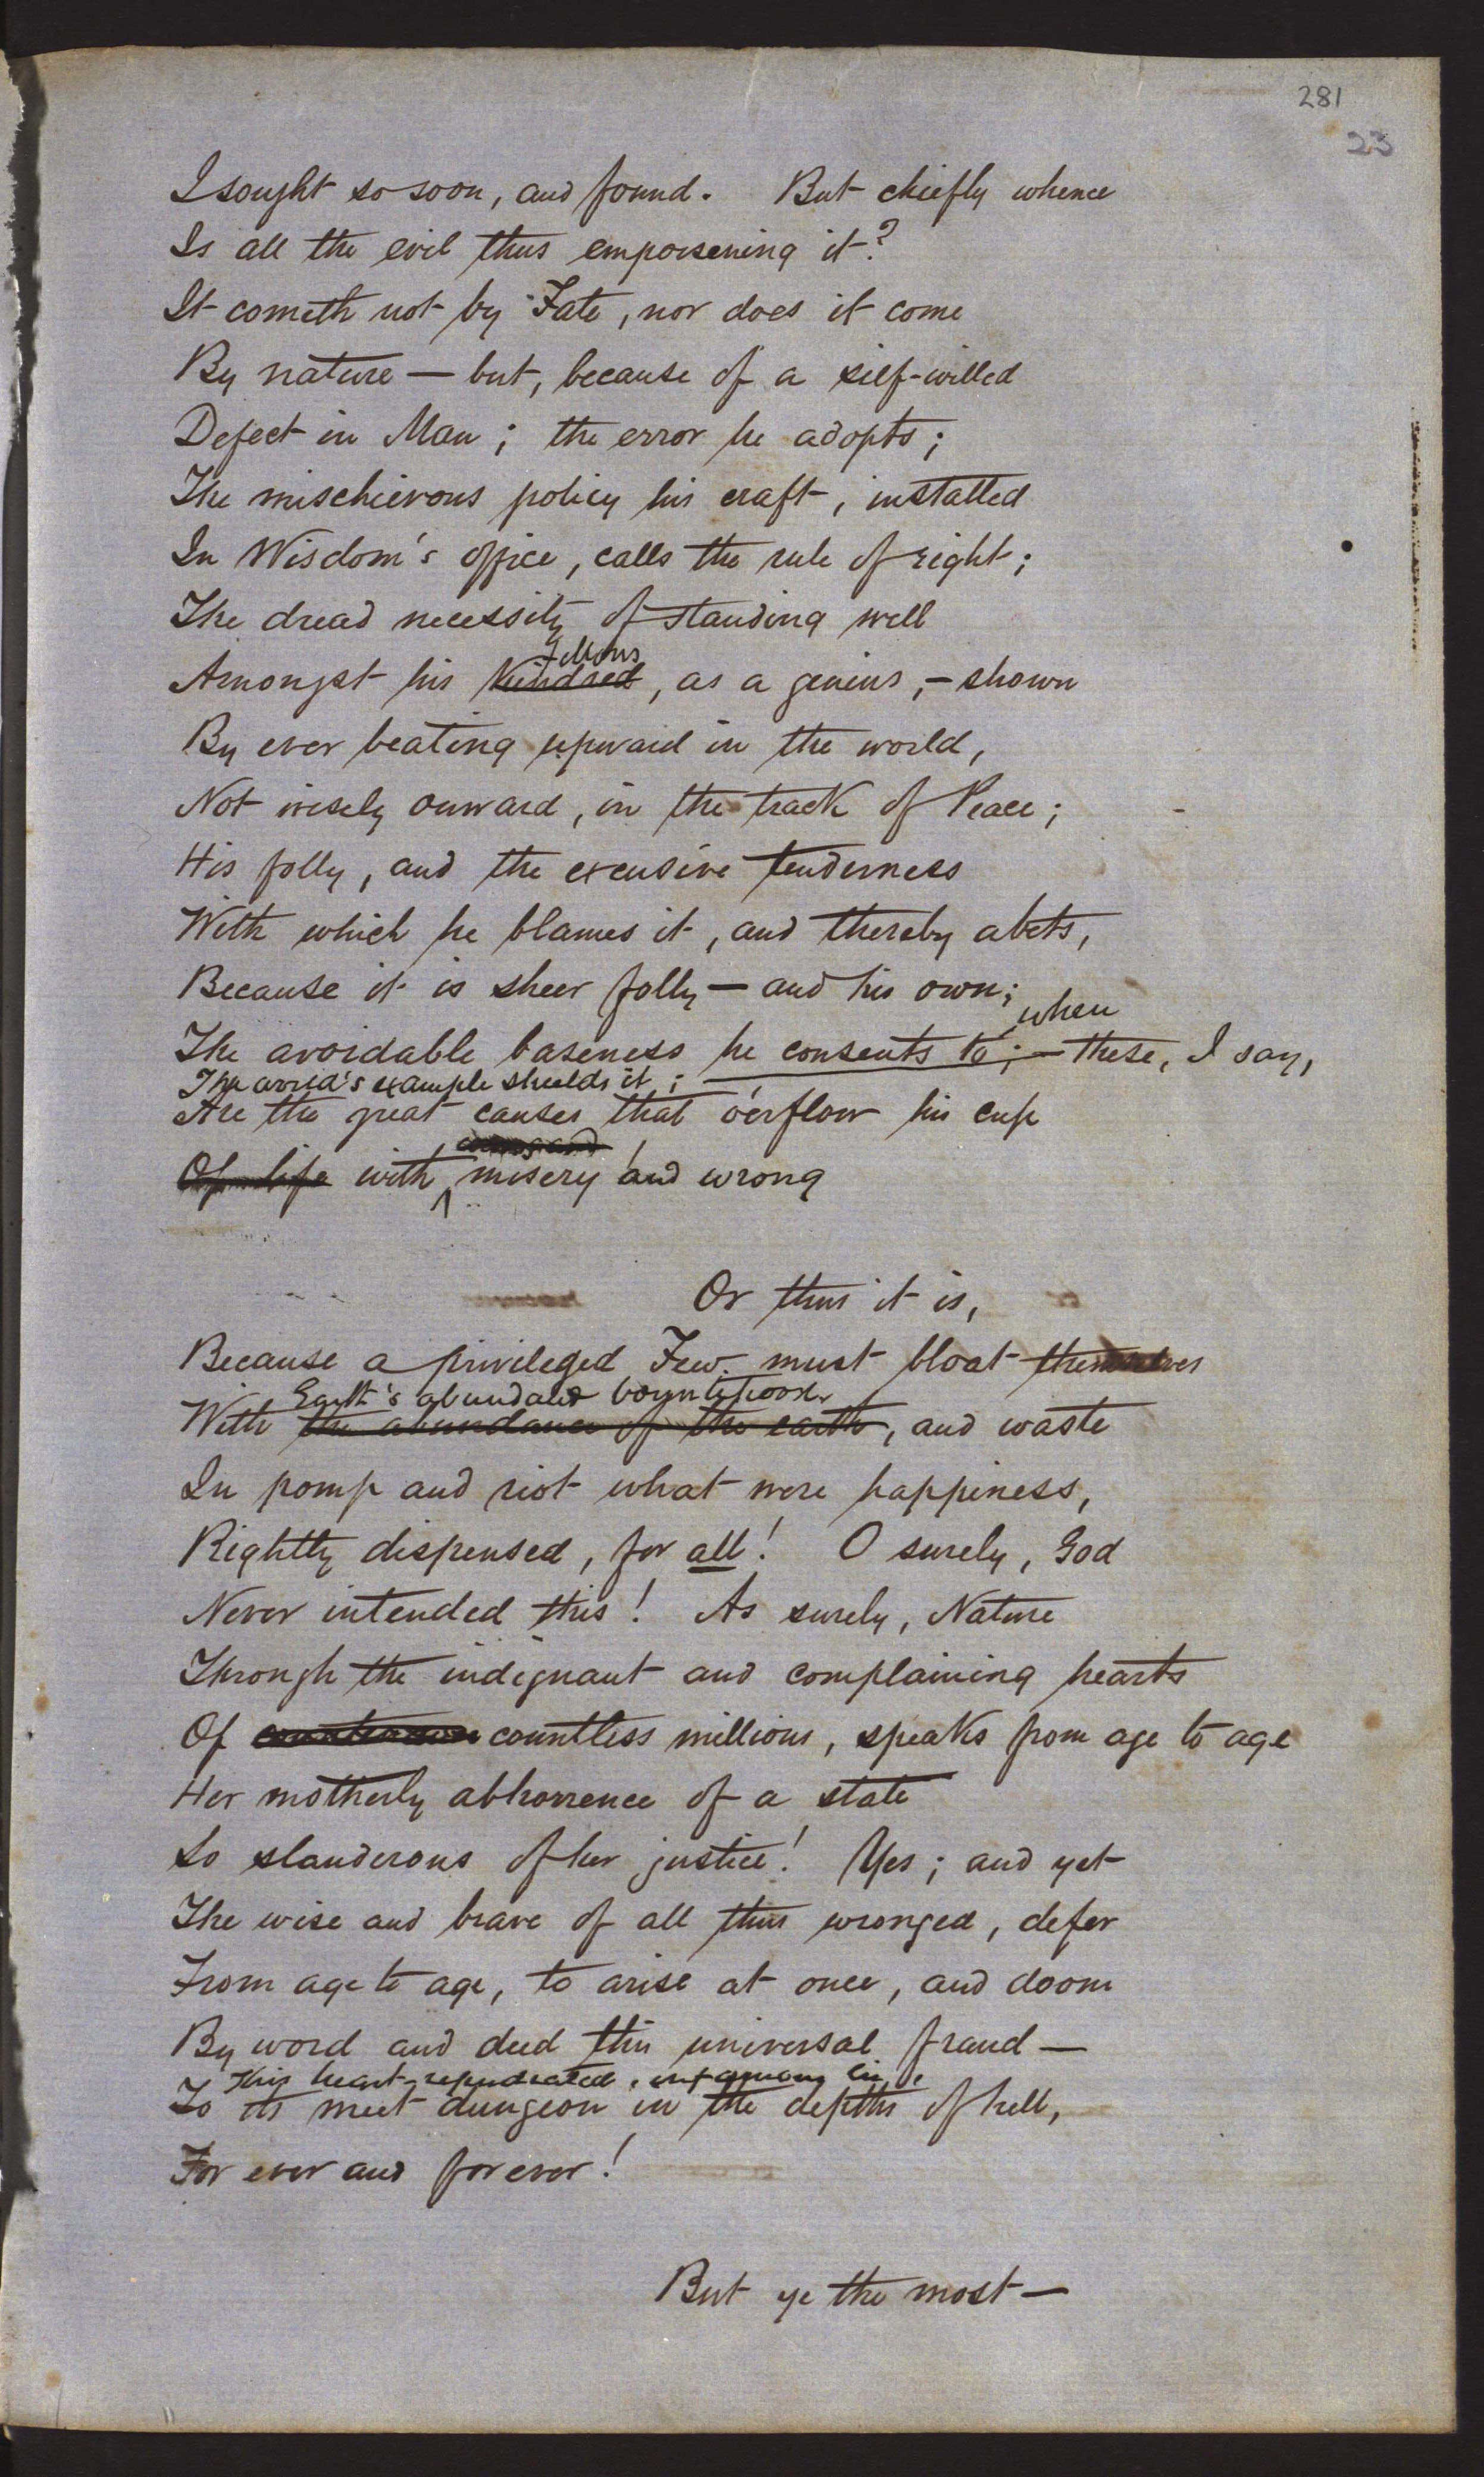 281
23
I sought so soon, and found. But chiefly whence
Is all the evil thus empoisening it?
It cometh not by Fate, nor does it come
By nature — but, because of a self-willed
Defect in Man; the error he adopts;
The mischievous policy his craft, installed
In Wisdom's office, calls the rule of right;
The dread necessity of standing well
fellows
Amongst his Kindred, as a genius, — shown
By ever beating upward in the world,
Not wisely onward, in the track of Peace;
His folly, and the excusive tenderness
With which he blames it, and thereby abets,
Because it is sheer folly — and his own;
when
The avoidable baseness he consents to; — these, I say,
The world's example shields it;
Are the great causes that o'erflow his cup
Of life with misery and wrong
Or thus it is,
Because a privileged Few must bloat themselves
Earth's abundant bountihood
With the abundance of the earth, and waste
In pomp and riot what were happiness,
Rightly dispensed, for all! O surely, God
Never intended this! As surely, Nature
Through the indignant and complaining hearts
Of countless millions, speaks from age to age
Her motherly abhorrence of a state
So slanderous of her justice! Yes; and yet
The wise and brave of all thus wronged, defer
From age to age, to arise at once, and doom
By word and deed this universal fraud —
This heart-repudiated, infamous lie,
To its meet dungeon in the depths of hell,
For ever and forever!
But ye the most —